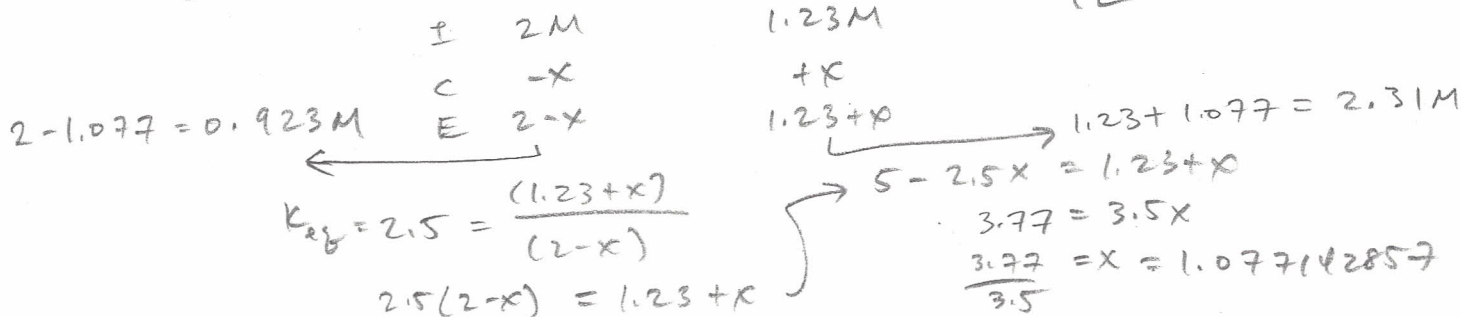 I 2M 1.23M
C -x +x
E 2-x 1.23+x
2-1.077 = 0.923M
1.23+1.077 = 2.31M
Keq = 2.5 = (1.23+x) / (2-x)
2.5(2-x) = 1.23+x
5 - 2.5x = 1.23+x
3.77 = 3.5x
3.77 / 3.5 = x = 1.077142857